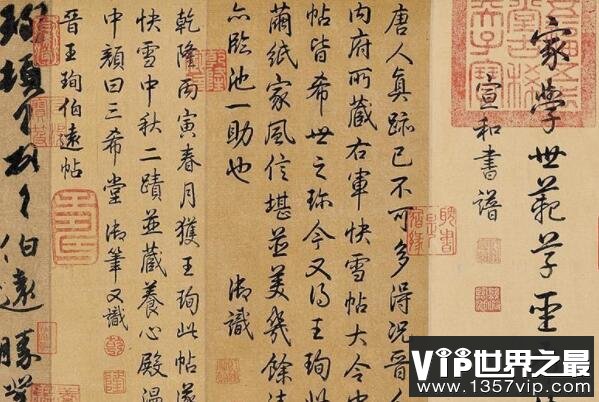 家學世範草聖
宣和書譜
唐人真跡已不可多得況晉人
內府所藏右軍快雪帖大令中
帖皆希世之珍今又得王珣此
繭紙家風信堪並美幾餘清
亦臨池一助也
御識
乾隆丙寅春月獲王珣此帖遂
快雪中秋二蹟並藏養心殿溫
中顏曰三希堂御筆又識
晉王珣伯遠帖
珣頓首頓首伯遠勝業
VIP世界之最
www.1357vip.com